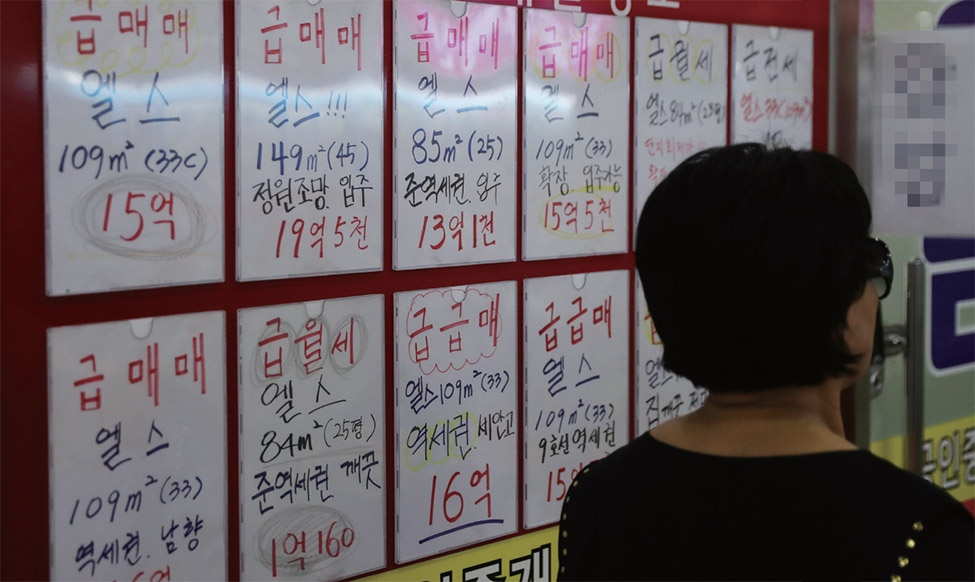 급매매
엘스
109m² (33C)
15억
급매매
엘스!!!
149m² (45)
정원조망. 입주
19억 5천
급매매
엘스
85m² (25)
준역세권. 입주
13억 1천
급매매
엘스
109m² (33)
확장. 입주가능
15억 5천
급월세
엘스 84m² (25평)
급전세
엘스 33C
급매매
엘스
109m² (33)
역세권. 남향
급월세
엘스
84m² (25평)
준역세권 깨끗
1억 160
급급매
엘스 109m² (33)
역세권. 세안고
16억
급급매
엘스
109m² (33)
9호선 역세권
15
엘스
중개
공인중